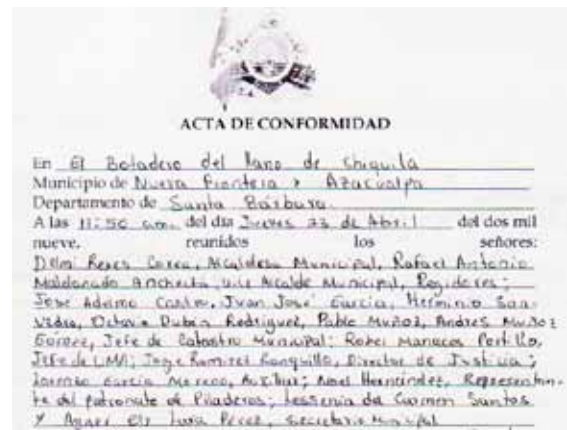 ACTA DE CONFORMIDAD
En El Boladero del llano de Chiquila
Municipio de Nueva Frontera y Azacualpa
Departamento de Santa Bárbara
A las 11:50 a.m. del dia Jueves 23 de Abril del dos mil
nueve, reunidos los señores:
Reyes Alcaldesa Municipal, Rafael Antonio
Maldonado Vice Alcalde Municipal, Regidores;
José Castro, Juan José García, Herminio
Octavio Dubón Rodriguez, Pablo Muñoz, Andres Muñoz
Jefe de Catastro Municipal; Manacés Portillo,
Jefe de UMA; Jorge Ramirez Ronquillo, Director de Justicia;
Lorenzo García Moreno, Auxiliar; Noel Hernández, Representan-
te del patronato de Piladeros; del Carmen Santos
y Pérez, Secretario Municipal